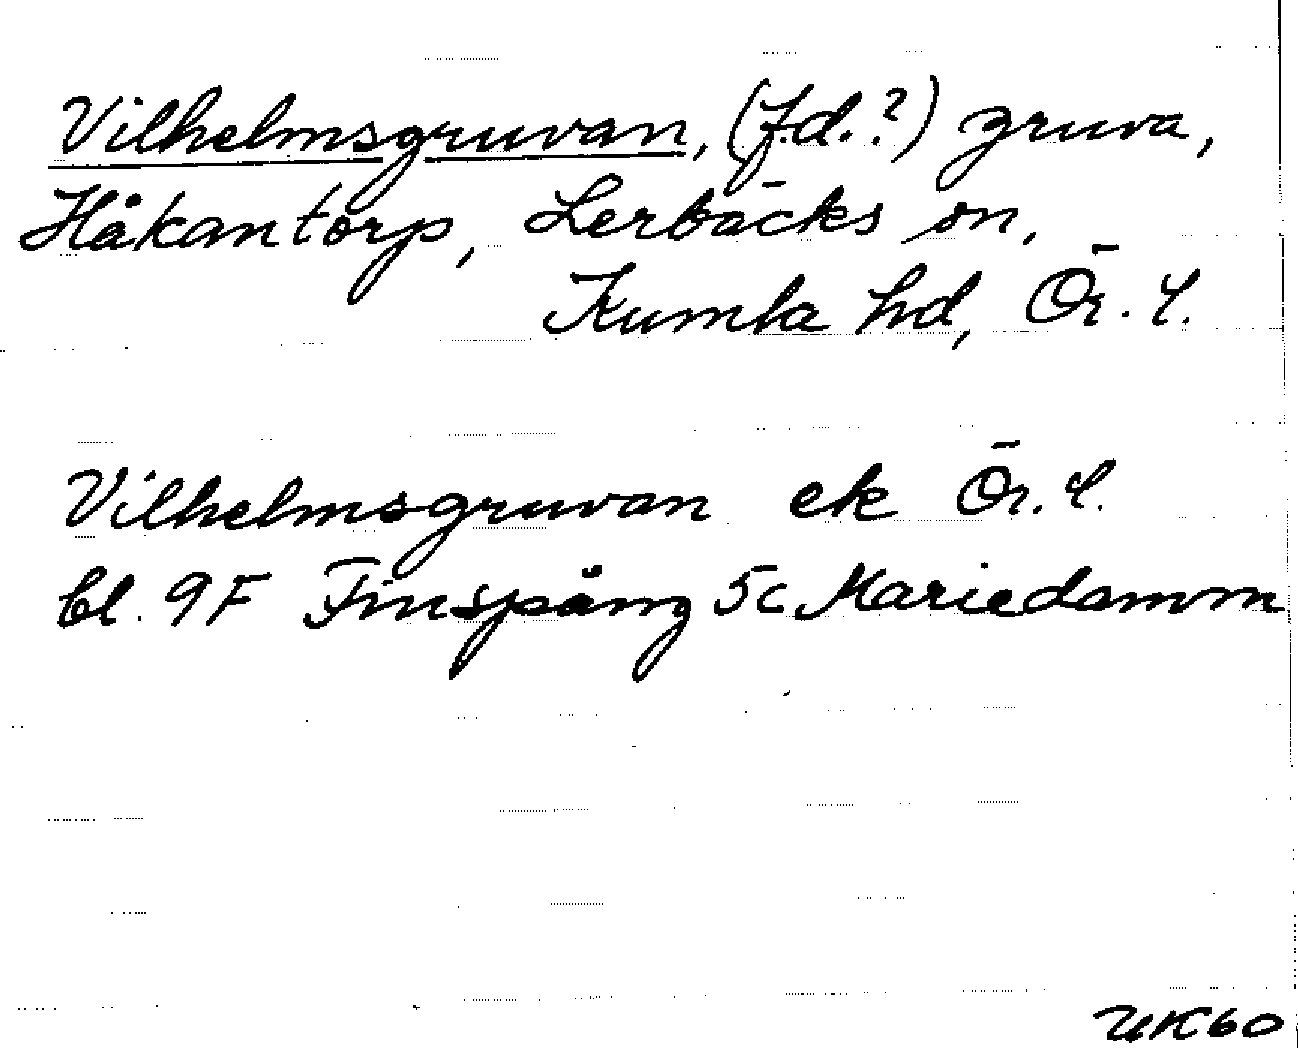 Vilhelmsgruvan, (f.d.?) gruva,
Håkantorp, Lerbäcks sn,
Kumla hd, Ör. l.
Vilhelmsgruvan ek Ör. l.
bl. 9F Finspång 5c Mariedamm
UK60